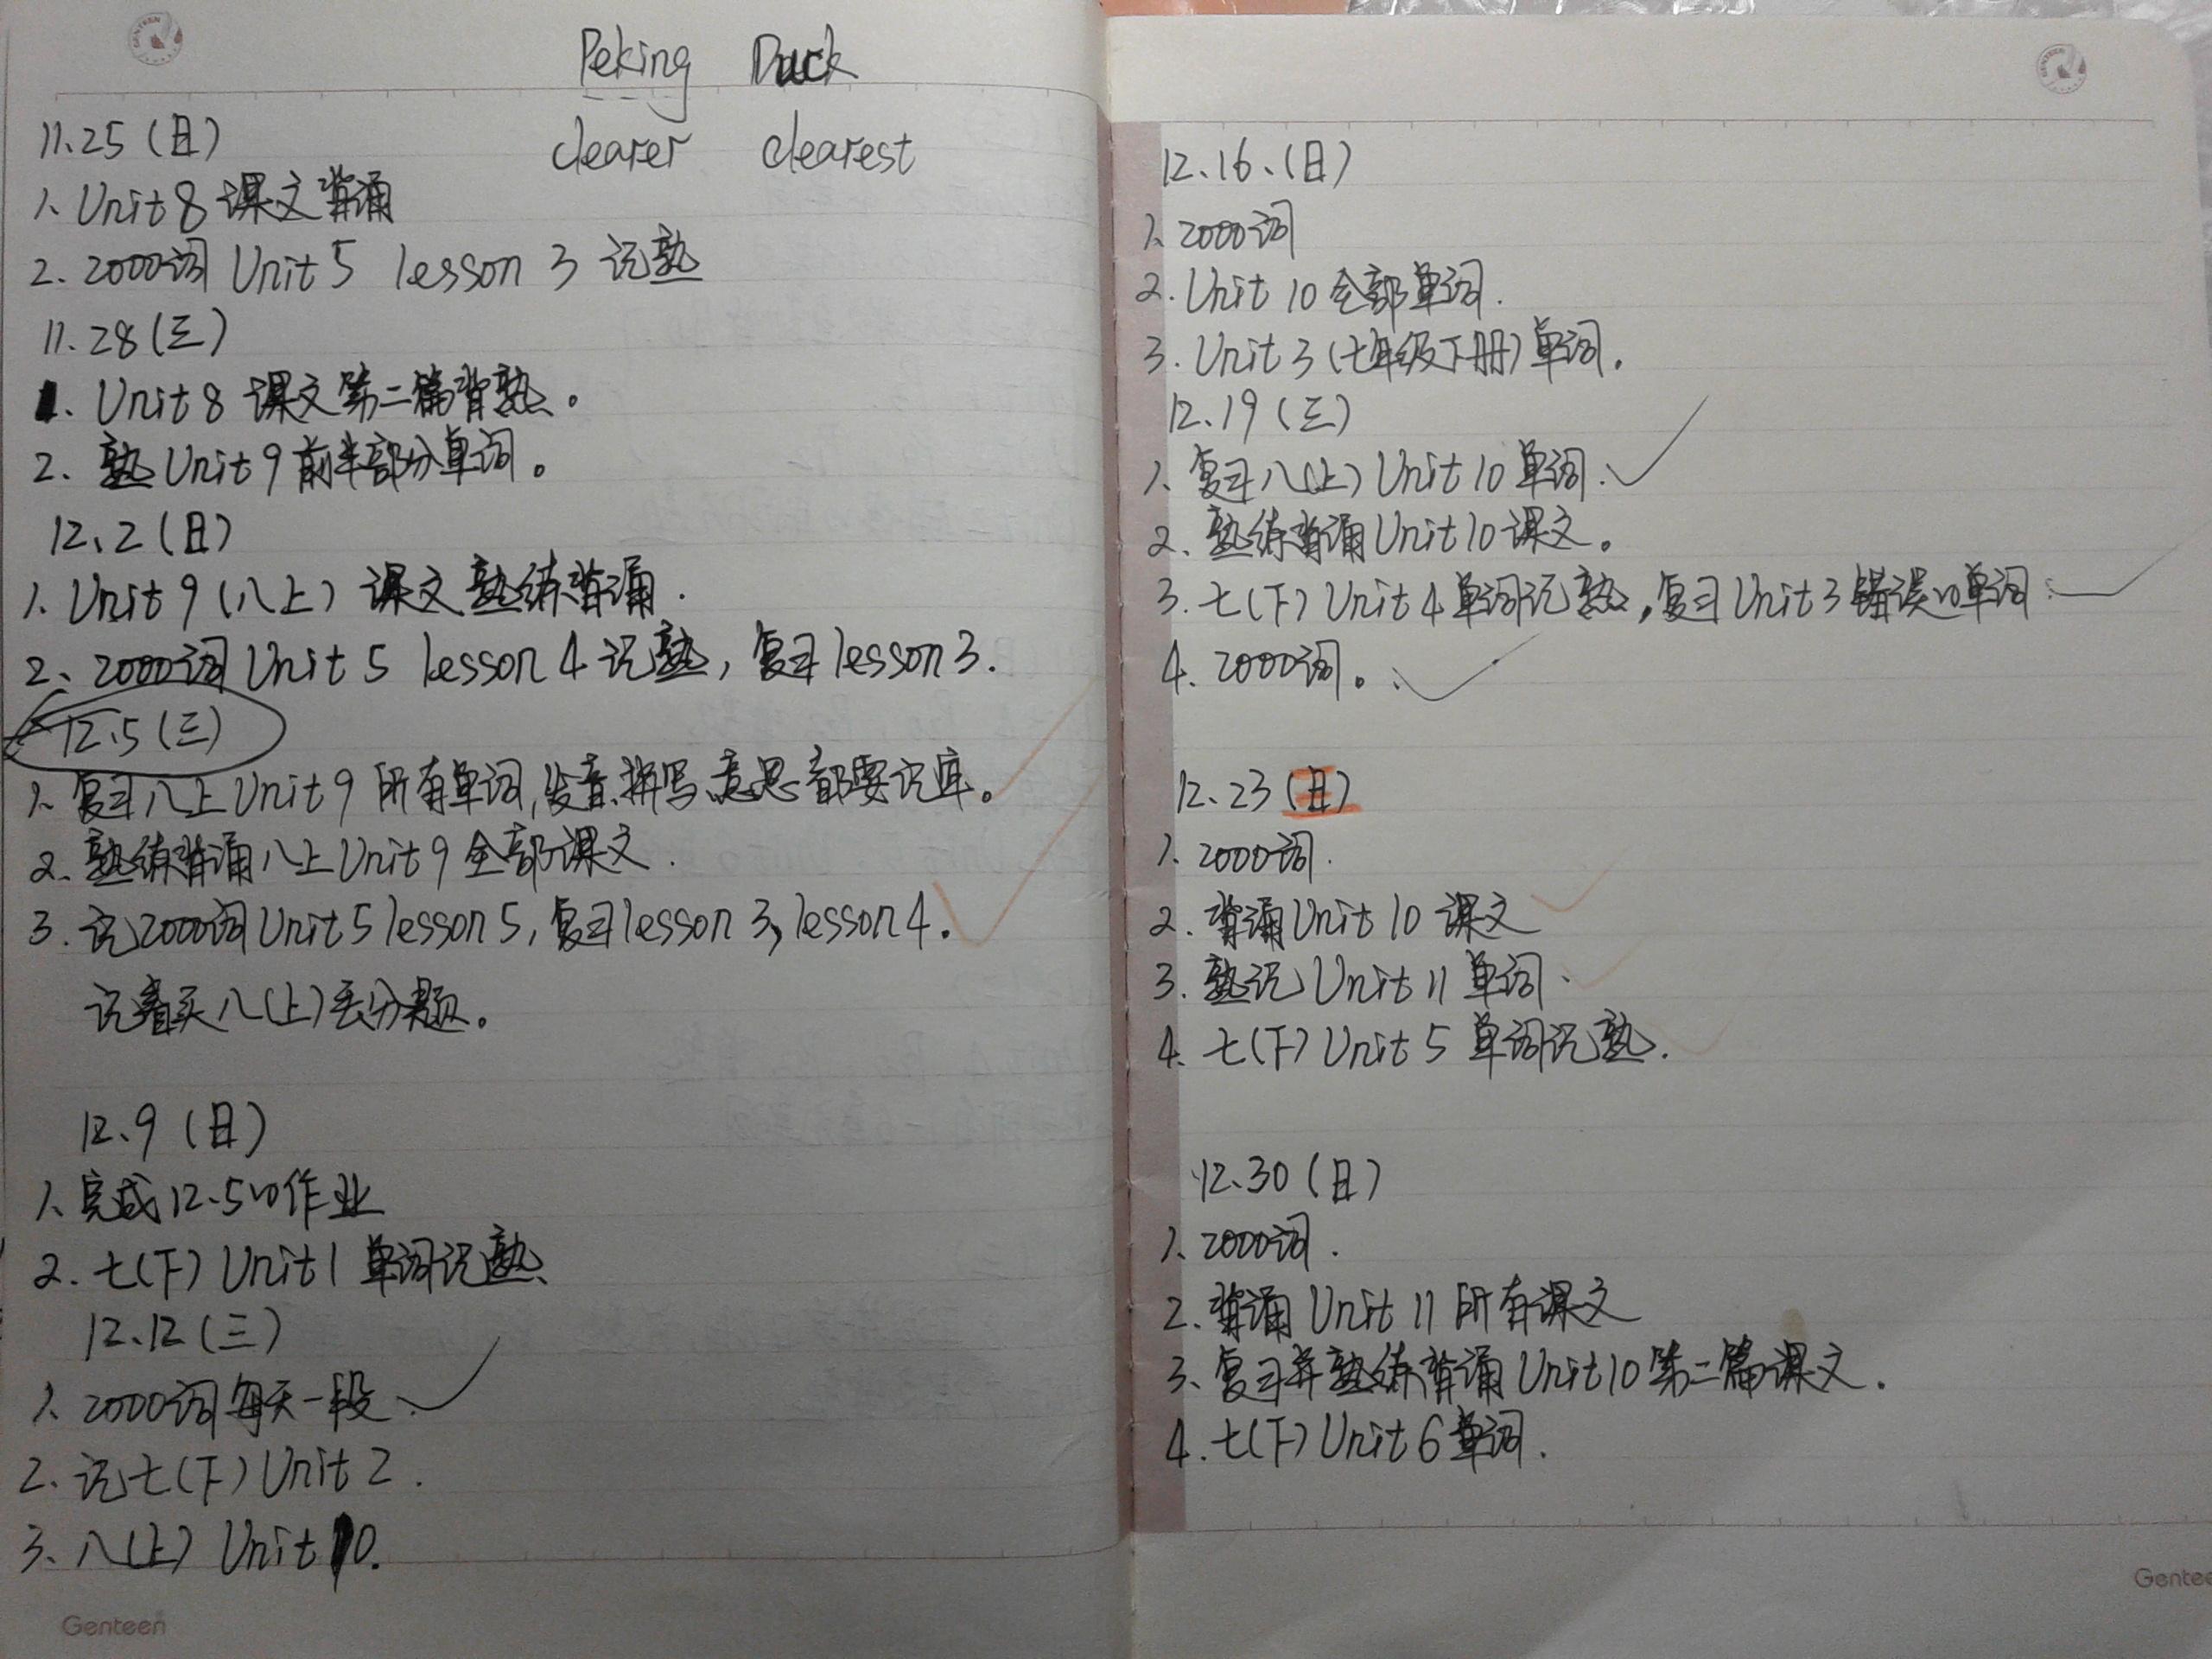 Peking Duck
clearer clearest
11.25(日)
1、Unit 8 课文背诵
2. 2000词 Unit 5 lesson 3 记熟
11.28(三)
1. Unit 8 课文第二篇背熟。
2. 熟Unit 9 前半部分单词。
12、2(日)
1、Unit 9(八上)课文熟练背诵.
2、2000词 Unit 5 lesson 4 记熟，复习lesson 3.
12.5(三)
1、复习八上Unit 9 所有单词,发音、拼写、意思都要记牢。
2、熟练背诵八上Unit 9 全部课文.
3. 记2000词Unit 5 lesson 5,复习lesson 3, lesson 4.
记着买八(上)丢分题。
12、9(日)
1、完成12.5的作业
2.七(下)Unit 1 单词记熟、
12、12(三)
1、2000词每天一段、
2. 记七(下)Unit 2.
3、八(上)Unit 10.
Genteen
12.16、(日)
1、2000词
2. Unit 10 全部单词.
3. Unit 3(七年级下册)单词.
12.19(三)
1、复习八(上)Unit 10 单词.
2、熟练背诵Unit 10 课文。
3. 七(下)Unit 4 单词记熟,复习Unit 3 错误的单词.
4. 2000词。
12.23(日)
1、2000词.
2. 背诵Unit 10 课文
3. 熟记 Unit 11 单词.
4. 七(下)Unit 5 单词记熟.
12.30(日)
1、2000词.
2. 背诵 Unit 11 所有课文
3、复习并熟练背诵Unit 10 第二篇课文.
4. 七(下)Unit 6 单词.